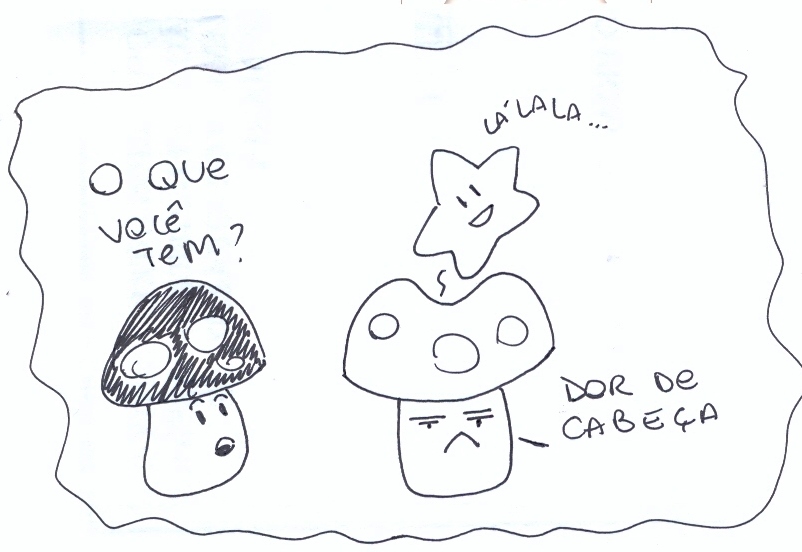 O QUE
VOCÊ
TEM?
LÁ LALA...
DOR DE
CABEÇA